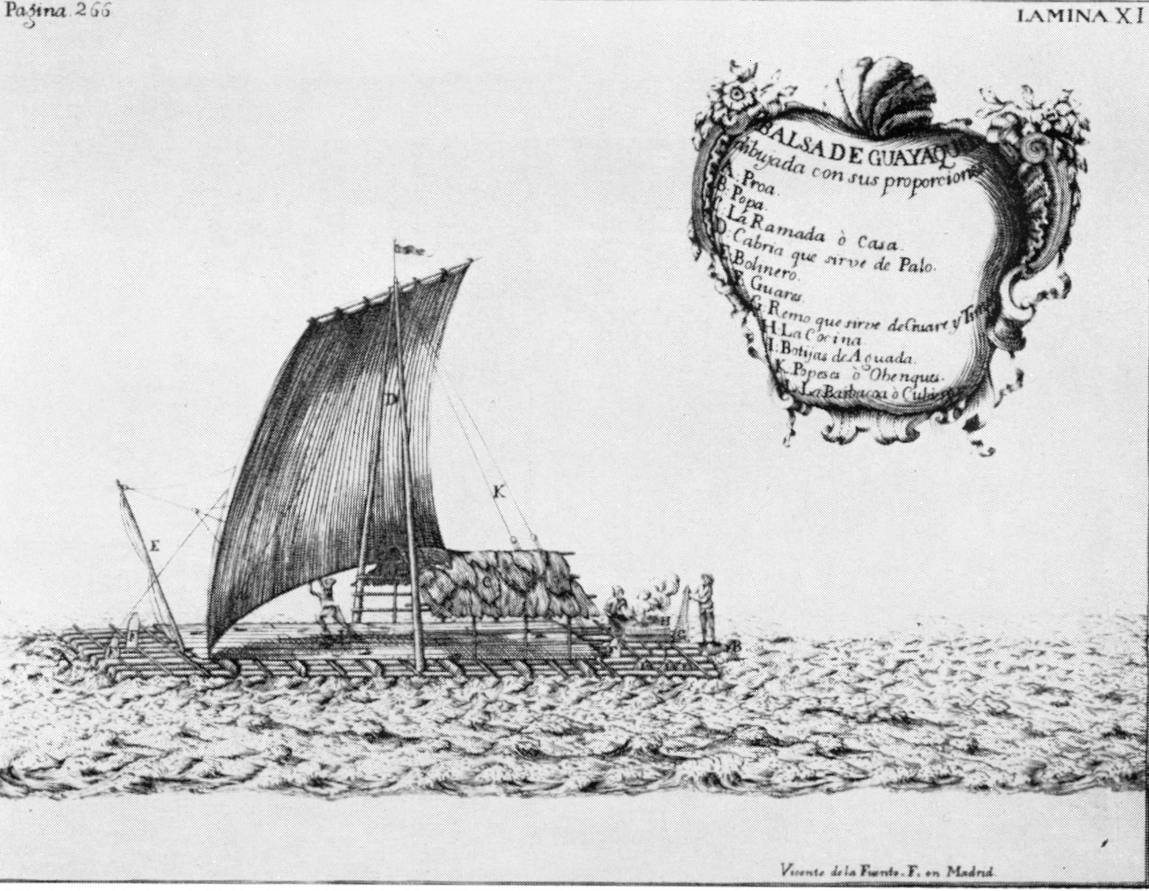 Pagina. 266
LAMINA XI
BALSA DE GUAYAQUIL
dibujada con sus proporciones
A. Proa.
B. Popa.
C. La Ramada ò Casa.
D. Cabria que sirve de Palo.
E. Bolinero.
F. Guares.
G. Remo que sirve de Guare y
H. La Cocina.
I. Botijas de Aguada.
K. Popeses ò Obenques.
L. La Barbacoa ò
D
K
E
C
F
H
G
B
Vicente de la Fuente. F. en Madrid.